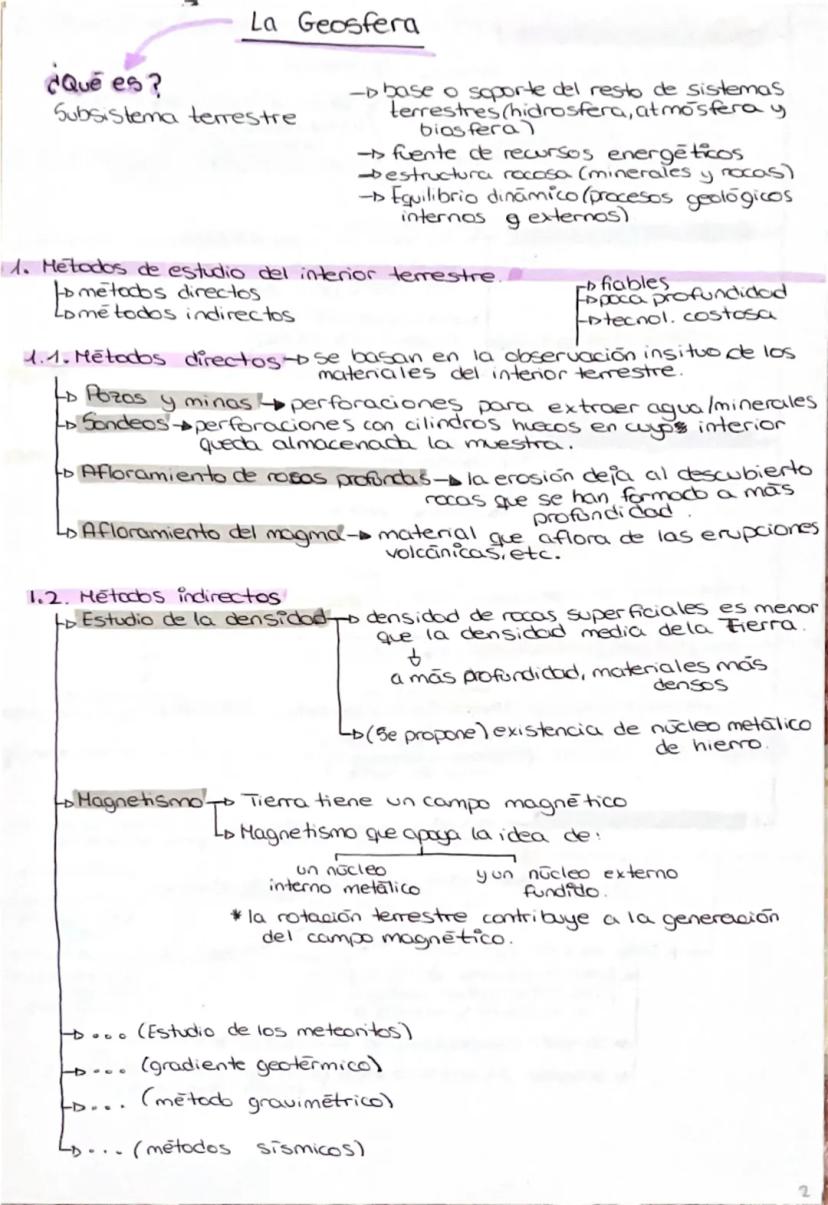 La Geosfera
¿Qué es?
Subsistema terrestre
→ base o soporte del resto de sistemas
terrestres (hidrosfera, atmósfera y
biosfera)
→ fuente de recursos energéticos
→ estructura rocosa (minerales y rocas)
→ Equilibrio dinámico (procesos geológicos
internos y externos)
1. Métodos de estudio del interior terrestre.
↳ métodos directos
↳ métodos indirectos
→ fiables
→ poca profundidad
→ tecnol. costosa
1.1. Métodos directos → se basan en la observación insituo de los
materiales del interior terrestre.
↳ Pozos y minas → perforaciones para extraer agua/minerales
↳ Sondeos → perforaciones con cilindros huecos en cuyos interior
queda almacenada la muestra.
↳ Afloramiento de rocas profundas → la erosión deja al descubierto
rocas que se han formado a más
profundidad.
↳ Afloramiento del magma → material que aflora de las erupciones
volcánicas, etc.
1.2. Métodos indirectos
↳ Estudio de la densidad → densidad de rocas superficiales es menor
que la densidad media dela Tierra.
↓
a más profundidad, materiales más
densos
↳ (Se propone) existencia de núcleo metálico
de hierro.
↳ Magnetismo → Tierra tiene un campo magnético
↳ Magnetismo que apoya la idea de:
un núcleo
interno metálico
y un núcleo externo
fundido.
* la rotación terrestre contribuye a la generación
del campo magnético.
↳ ... (Estudio de los meteoritos)
↳ ... (gradiente geotérmico)
↳ ... (método gravimétrico)
↳ ... (métodos sísmicos)
2